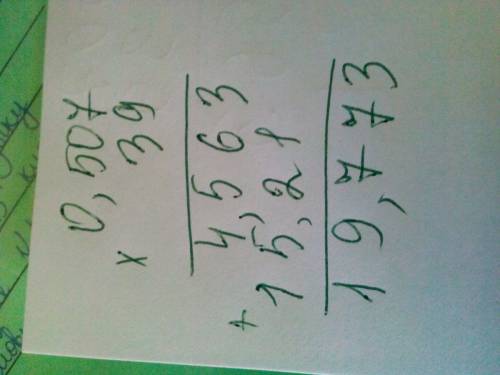 0,507
× 39
4,563
+ 15,21
19,773